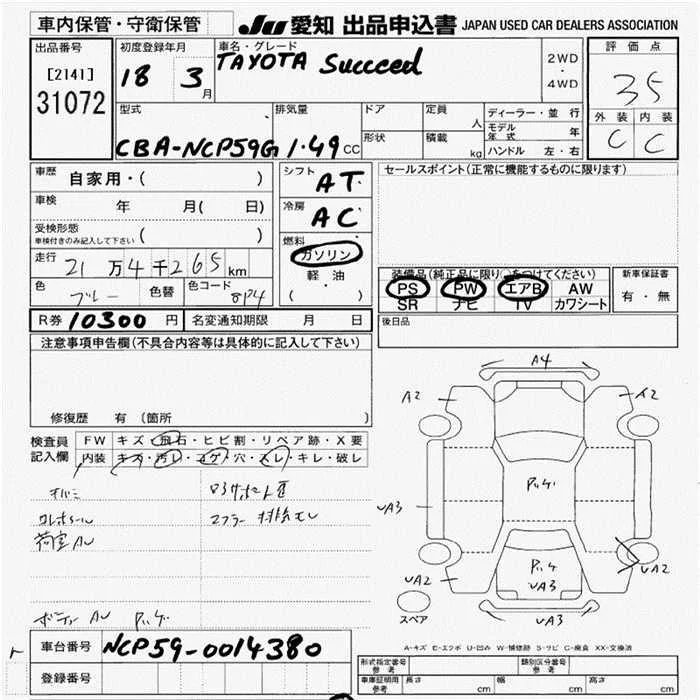 車内保管・守衛保管
JU 愛知 出品申込書 JAPAN USED CAR DEALERS ASSOCIATION
出品番号
[2141]
31072
初度登録年月
18 3月
車名・グレード
TAYOTA Succeed
2WD
・
4WD
評価点
35
外装 内装
C C
型式
CBA-NCP59G
排気量
1.49CC
ドア
形状
定員 人
積載 kg
ディーラー・並行
モデル年式 年
ハンドル 左・右
車歴
自家用・( )
車検 年 月( 日)
受検形態
車検付きのみ記入して下さい ( )
走行
21万4千265km
色 ブルー 色替 色コード 8P4
シフト
AT
冷房
AC
燃料
ガソリン
軽油
( ・ )
セールスポイント(正常に機能するものに限ります)
装備品(純正品に限り○をつけてください)
PS PW エアB AW
SR ナビ TV カワシート
新車保証書
有・無
後日品
R券 10300 円 名変通知期限 月 日
注意事項申告欄(不具合内容等は具体的に記入して下さい)
修復歴 有 (箇所 )
検査員
記入欄
FW キズ・飛石・ヒビ割・リペア跡・X要
内装 キズ・汚レ・コゲ・穴・スレ・キレ・破レ
荷室AU
ボディーAU
A4
A2
A2
UA3
UA2
UA2
UA3
UA3
スペア
A-キズ E-エクボ U-凹み W-補修跡 S-サビ C-腐食 XX-交換済
車台番号 NCP59-0014380
登録番号
形式指定番号
参考
類別区分番号
参考
車庫証明用
参考
長さ cm 幅 cm 高さ cm